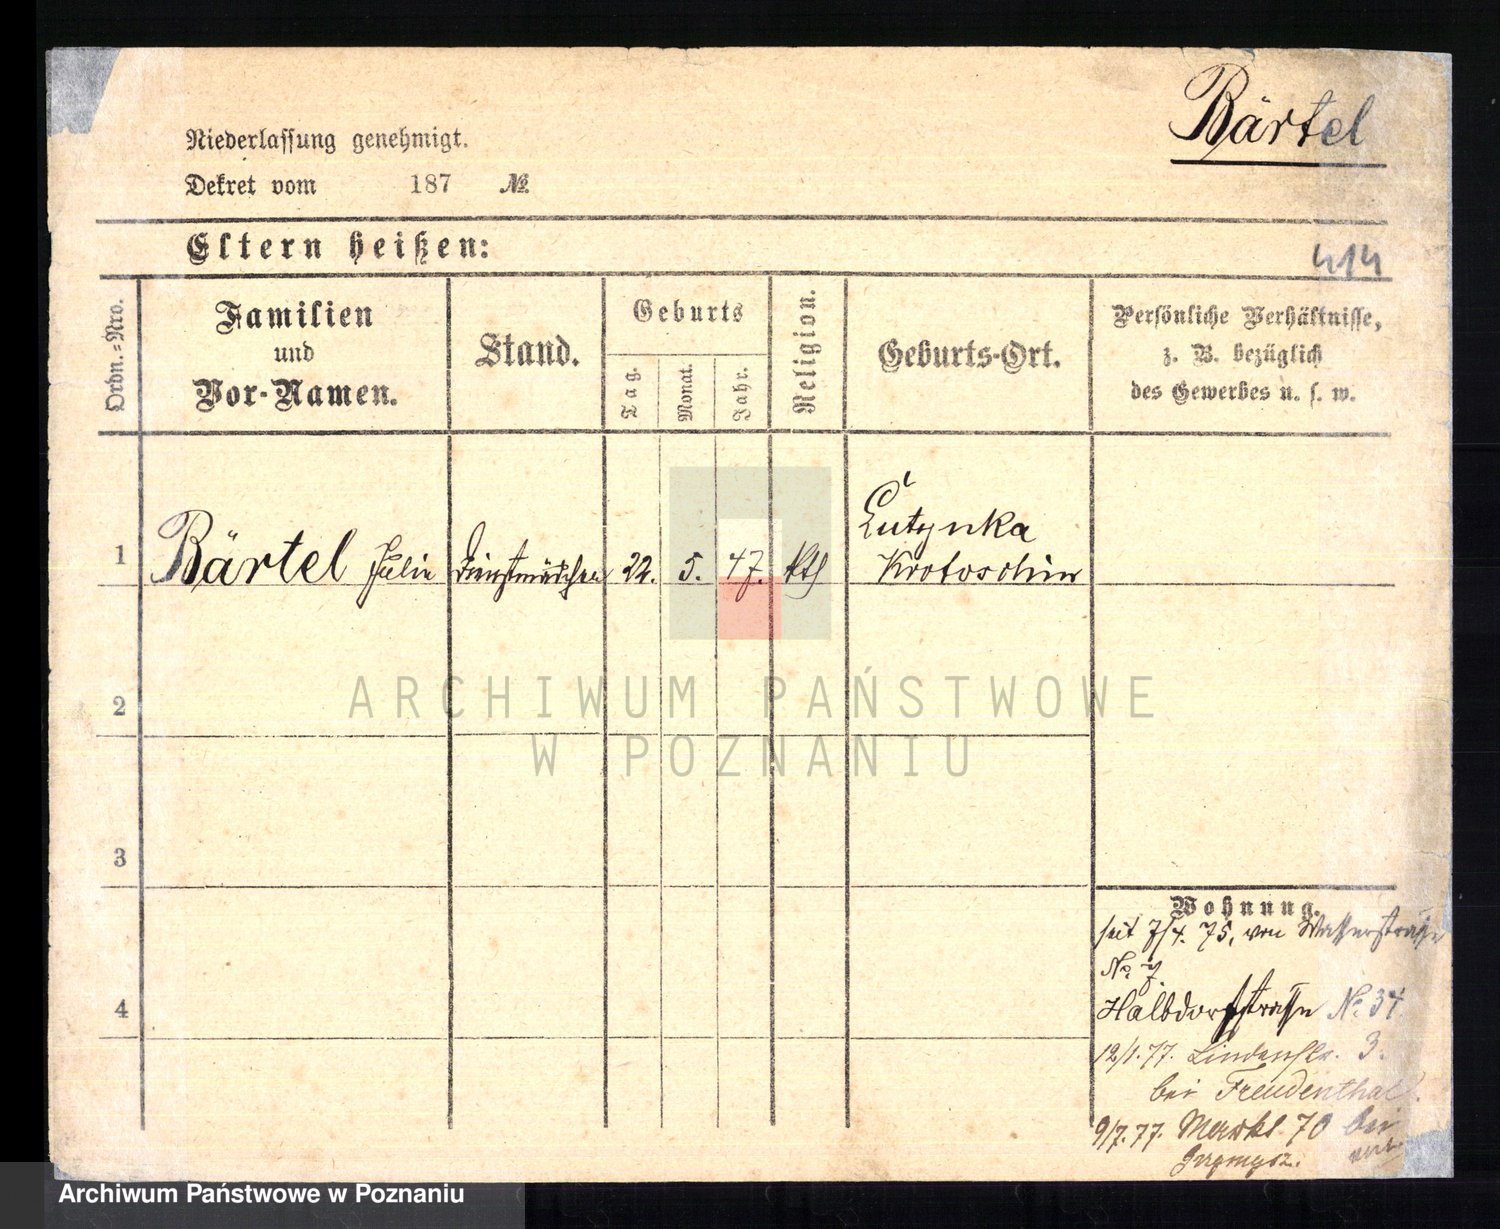 Bärtel
Niederlassung genehmigt.
Dekret vom 187 №
Eltern heißen:
414
Ordn.-Nro.
Familien
und
Vor-Namen.
Stand.
Geburts
Tag.
Monat.
Jahr.
Religion.
Geburts-Ort.
Persönliche Verhältnisse,
z. B. bezüglich
des Gewerbes u. s. w.
Lutynka
1 Bärtel Julie Dienstmädchen 22. 5. 47. kth Krotoschin
2
3
4
Wohnung.
seit 7/4. 75, von Wasserstraße
No 7.
Halbdorfstraße No 34.
12/1. 77. Lindenstr. 3.
bei Freudenthal.
9/7. 77. Markt 70 bei
ARCHIWUM PAŃSTWOWE
W POZNANIU
Archiwum Państwowe w Poznaniu